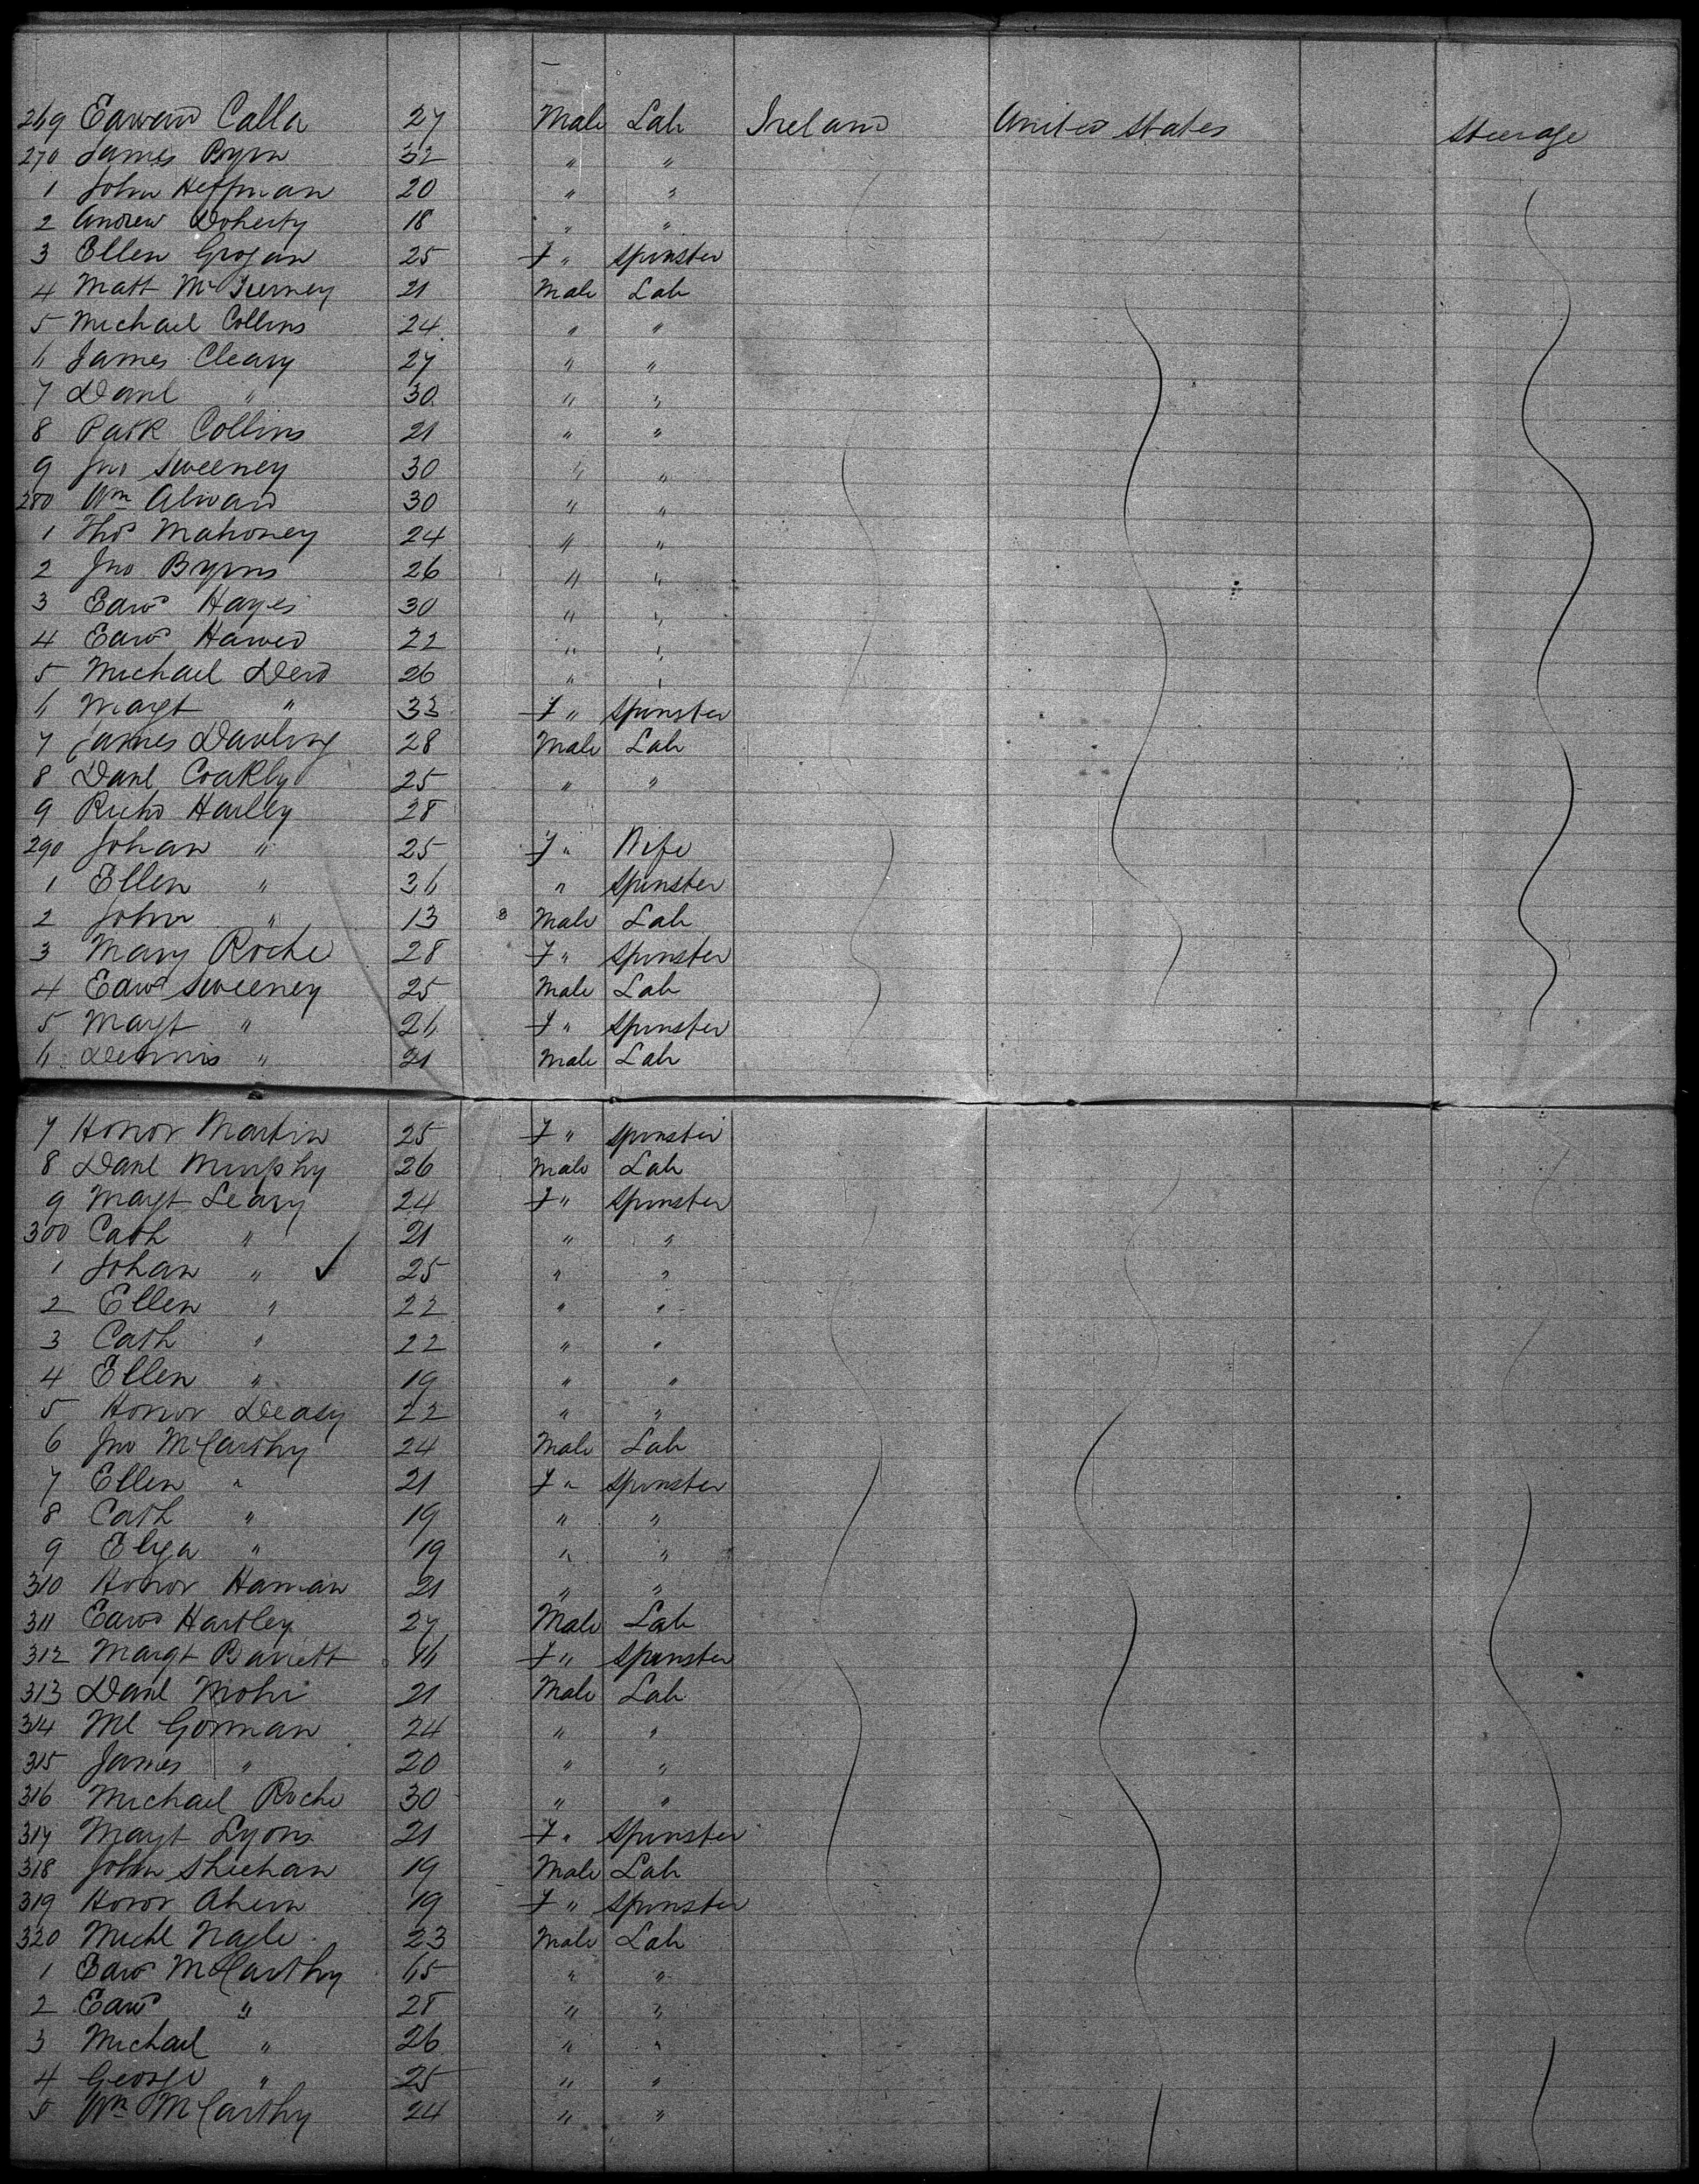 269 Edward Calla 27 Male Lab Ireland United States Steerage
270 James Byrn 32 " "
1 John Heffman 20 " "
2 Andrew Doherty 18 " "
3 Ellen Grogan 25 F " Spinster
4 Matt McTierney 21 Male Lab
5 Michael Collins 24 " "
6 James Cleary 27 " "
7 Danl " 30 " "
8 Patk Collins 21 " "
9 Jno Sweeney 30 " "
280 Wm Alward 30 " "
1 Thos Mahoney 24 " "
2 Jno Byrns 26 " "
3 Edwd Hayes 30 " "
4 Edwd 22 " "
5 Michael 26 " "
6 Margt " 33 F " Spinster
7 James Darling 28 Male Lab
8 Danl Coakly 25 " "
9 Richd Harley 28
290 Johan " 25 F " Wife
1 Ellen " 36 " Spinster
2 John " 13 Male Lab
3 Mary Roche 28 F " Spinster
4 Edwd Sweeney 25 Male Lab
5 Margt " 26 F " Spinster
6 Dennis " 21 Male Lab
7 Honor Martin 25 F " Spinster
8 Danl Murphy 26 Male Lab
9 Margt Leary 24 F " Spinster
300 Cath " 21 " "
1 Johan " ✓ 25 " "
2 Ellen " 22 " "
3 Cath " 22 " "
4 Ellen " 19 " "
5 Honor Deasy 22 " "
6 Jno McCarthy 24 Male Lab
7 Ellen " 21 F " Spinster
8 Cath " 19 " "
9 Eliza " 19 " "
310 Honor Hannan 21 " "
311 Edwd Hartley 27 Male Lab
312 Margt Barrett 16 F " Spinster
313 Danl 21 Male Lab
314 Ml Gorman 24 " "
315 James " 20 " "
316 Michael Roche 30 " "
317 Margt Lyons 21 F " Spinster
318 John Sheehan 19 Male Lab
319 Honor Ahern 19 F " Spinster
320 Michl Nagle 23 Male Lab
1 Edwd McCarthy 65 " "
2 Edwd " 28 " "
3 Michael " 26 " "
4 George " 25 " "
5 Wm McCarthy 24 " "